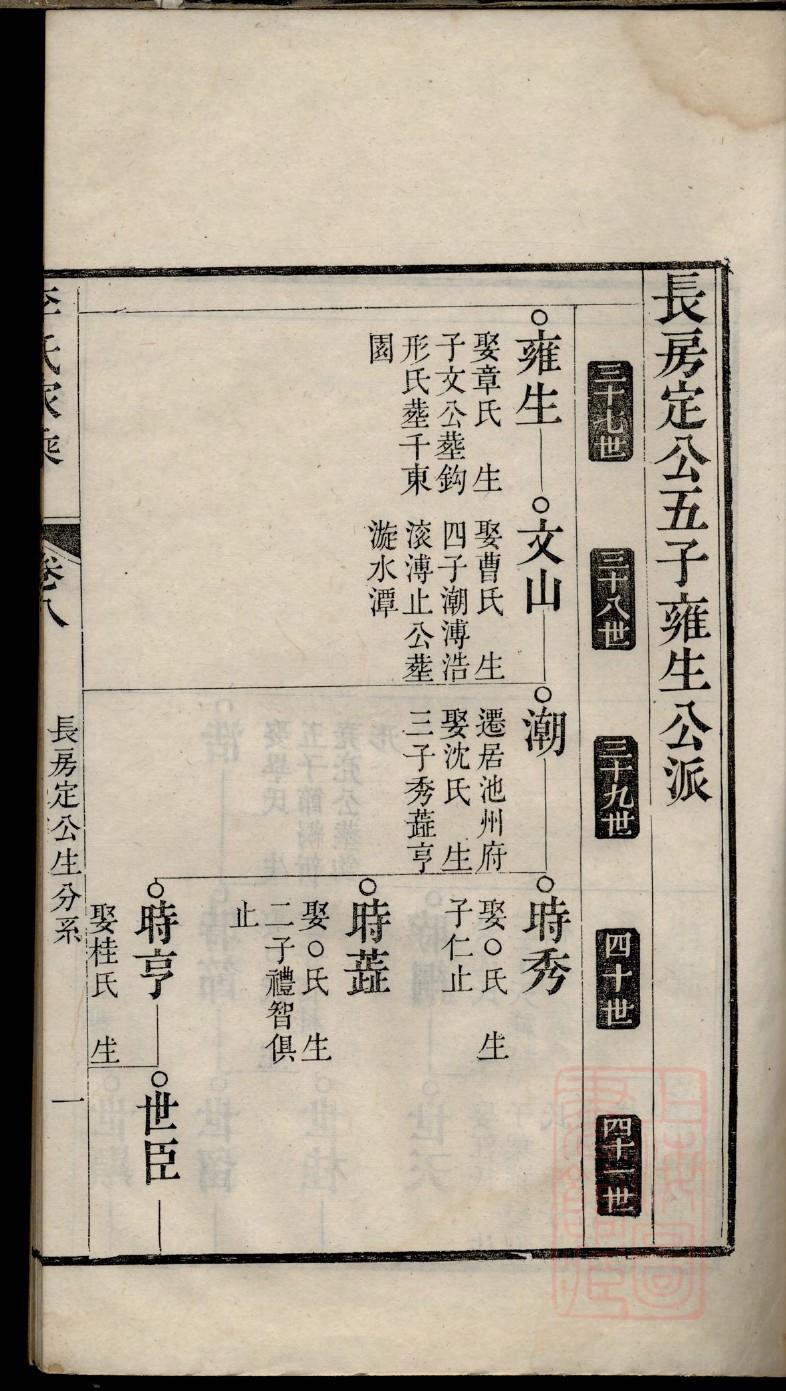 長房定公五子雍生公派
三十七世
三十八世
三十九世
四十世
四十一世
雍生
娶章氏　生
子文公塟鈎
形氏塟千東
園
文山
娶曹氏　生
四子潮溥浩
滚溥止公塟
漩水潭
潮
遷居池州府
娶沈氏　生
三子秀蕋亨
時秀
娶○氏　生
子仁止
時蕋
娶○氏　生
二子禮智俱
止
時亨
娶桂氏　生
世臣
李氏家乘
卷八
長房定公生分系
一